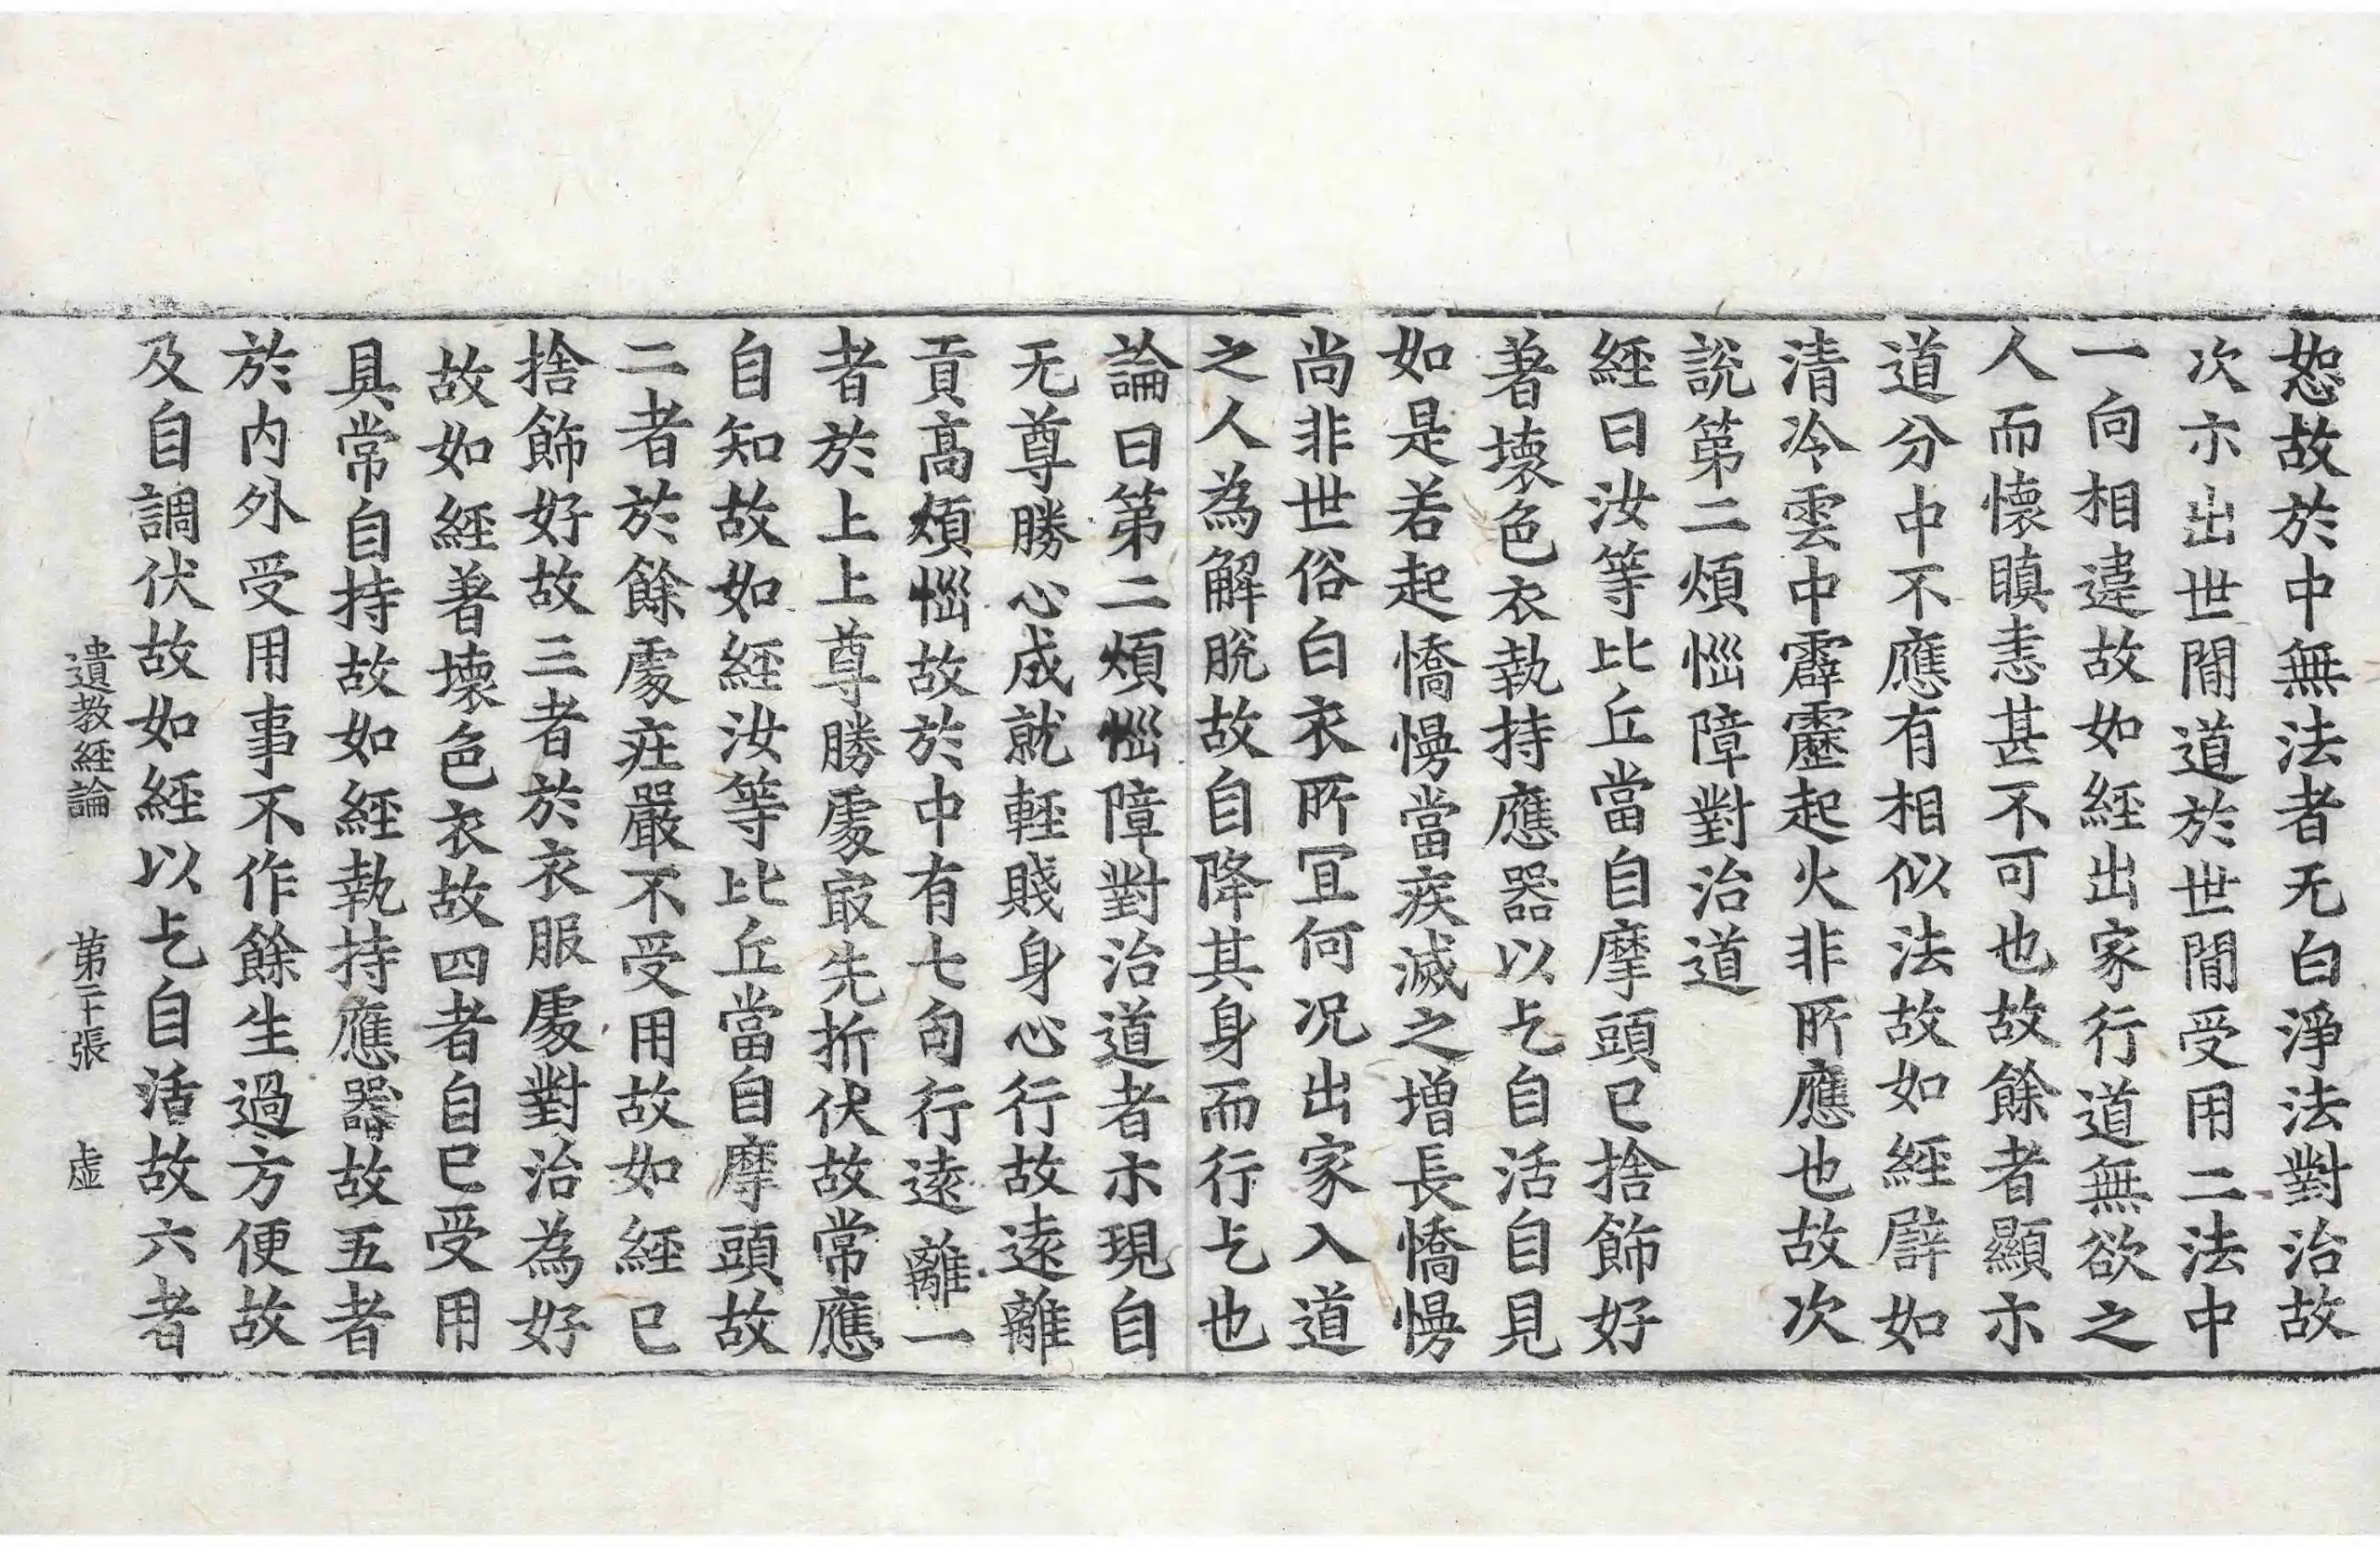 恕故於中無法者无白淨法對治故
次示出世間道於世間受用二法中
一向相違故如經出家行道無欲之
人而懷瞋恚甚不可也故餘者顯示
道分中不應有相似法故如經譬如
清冷雲中霹靂起火非所應也故次
說第二煩惱障對治道
經曰汝等比丘當自摩頭已捨飾好
著壞色衣執持應器以乞自活自見
如是若起憍慢當疾滅之增長憍慢
尚非世俗白衣所冝何况出家入道
之人為解脫故自降其身而行乞也
論曰第二煩惱障對治道者示現自
无尊勝心成就輕賤身心行故遠離
貢高煩惱故於中有七句行遠離一
者於上上尊勝處㝡先折伏故常應
自知故如經汝等比丘當自摩頭故
二者於餘處莊嚴不受用故如經已
捨飾好故三者於衣服處對治為好
故如經著壞色衣故四者自已受用
具常自持故如經執持應器故五者
於內外受用事不作餘生過方便故
及自調伏故如經以乞自活故六者
遺教經論 第二十張 虛